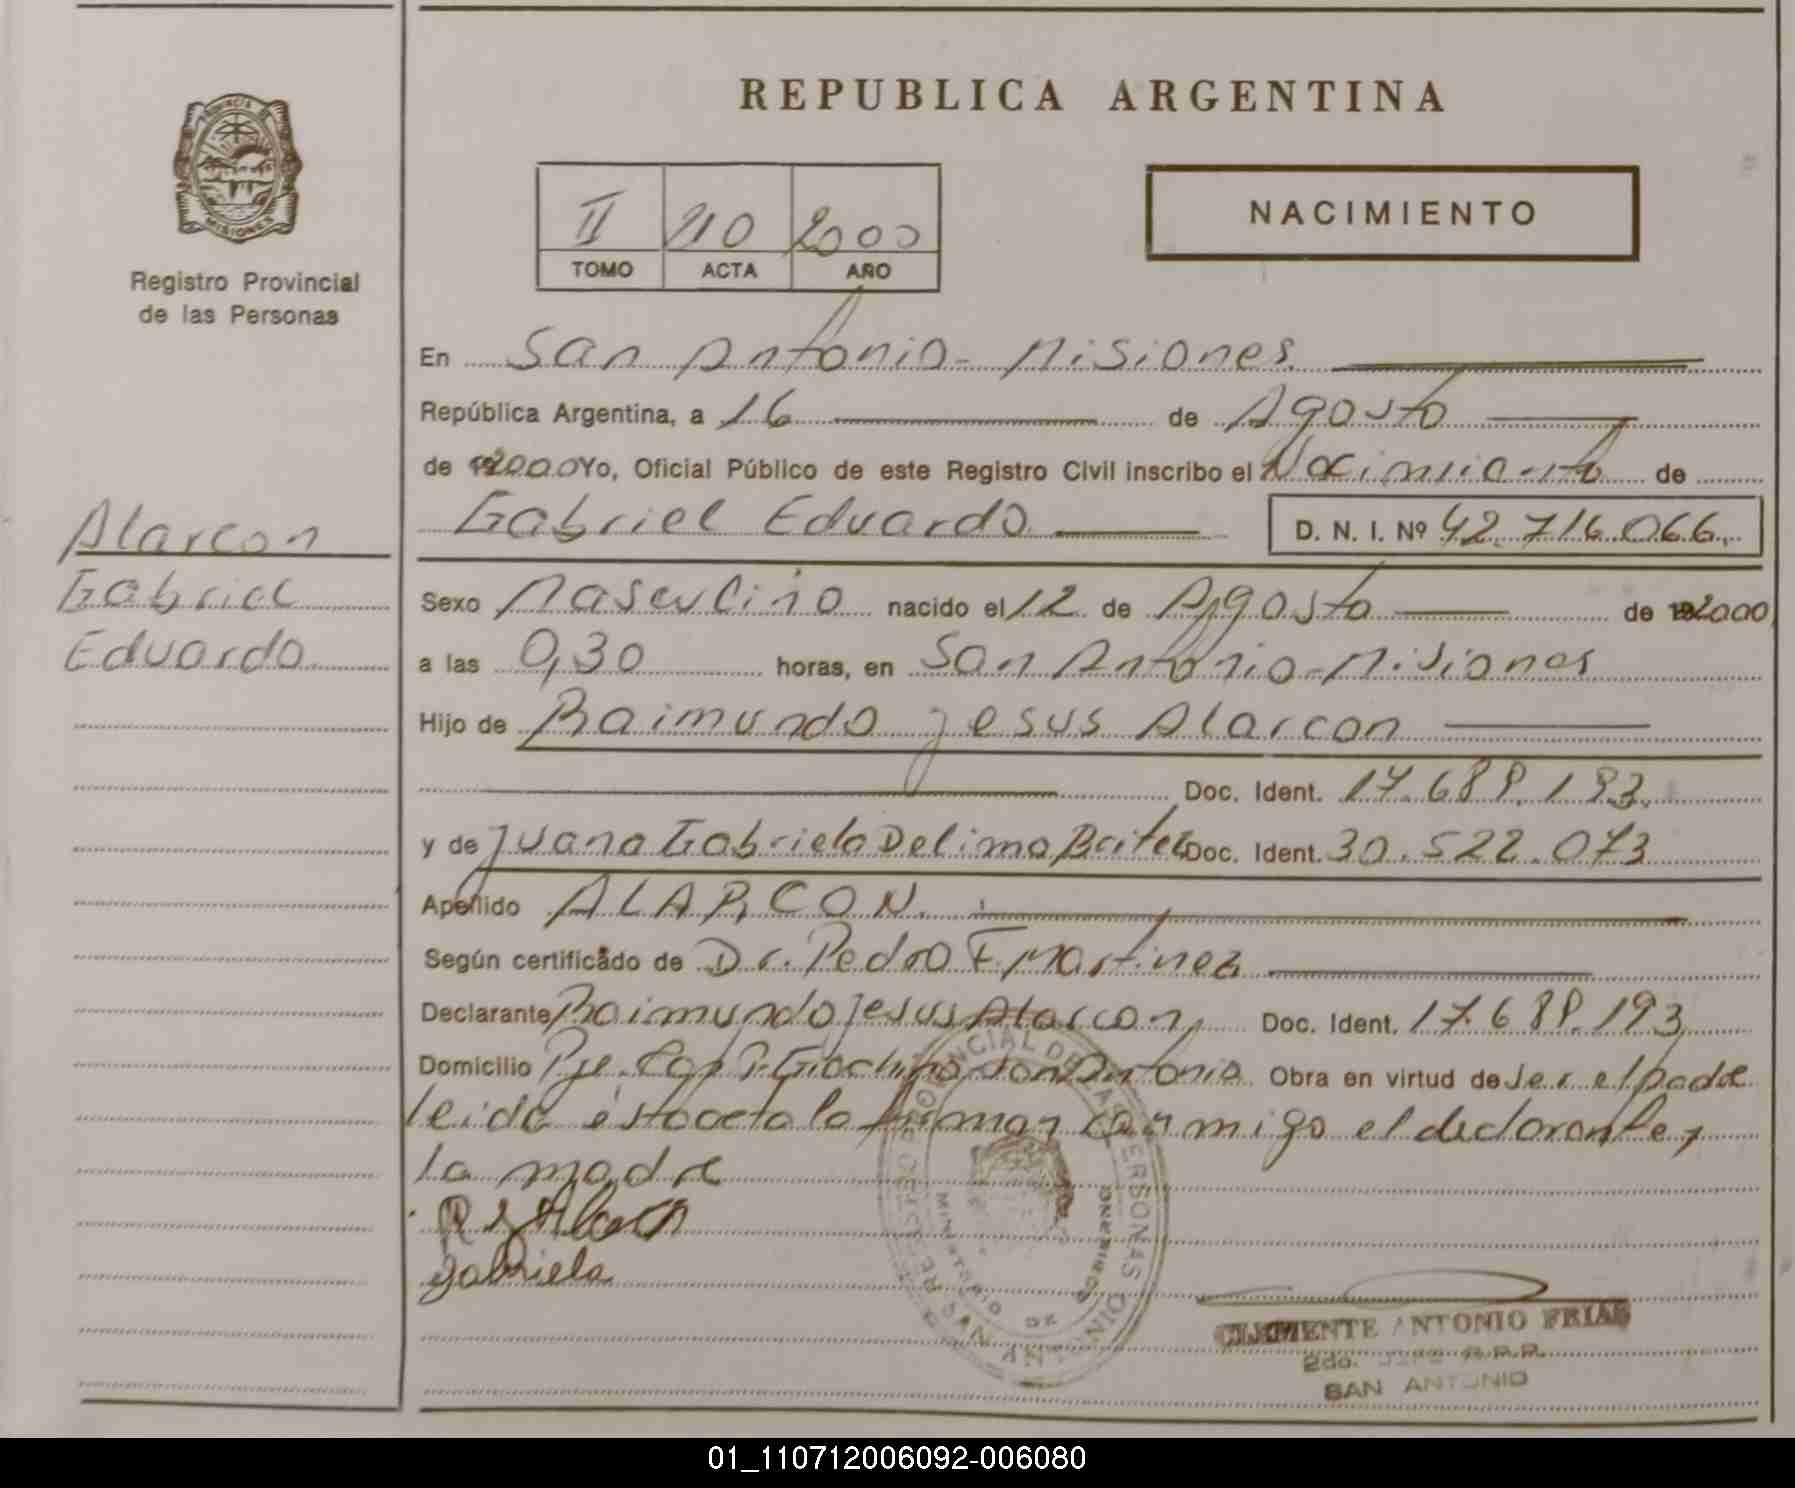 REPUBLICA ARGENTINA
PROVINCIA DE
MISIONES
Registro Provincial
de las Personas
II 210 2000
TOMO ACTA AÑO
NACIMIENTO
En San Antonio - Misiones.
República Argentina, a 16 de Agosto
de 2000 Yo, Oficial Público de este Registro Civil inscribo el Nacimiento de
Gabriel Eduardo D. N. I. Nº 42.716.066.
Alarcon
Gabriel
Eduardo
Sexo Masculino nacido el 12 de Agosto de 2000
a las 0,30 horas, en San Antonio - Misiones
Hijo de Raimundo Jesus Alarcon
Doc. Ident. 17.688.193.
y de Juana Gabriela Delima Beitez Doc. Ident. 30.522.073
Apellido ALARCON.
Según certificado de Dr. Pedro F. Martinez
Declarante Raimundo Jesus Alarcon, Doc. Ident. 17.688.193
Domicilio Pje. San Antonio. Obra en virtud de ser el padre
leida ésta acta la firman con migo el declarante y
la madre
Gabriela
CLEMENTE ANTONIO FRIAS
2do. JEFE R.P.P.
SAN ANTONIO
01_110712006092-006080